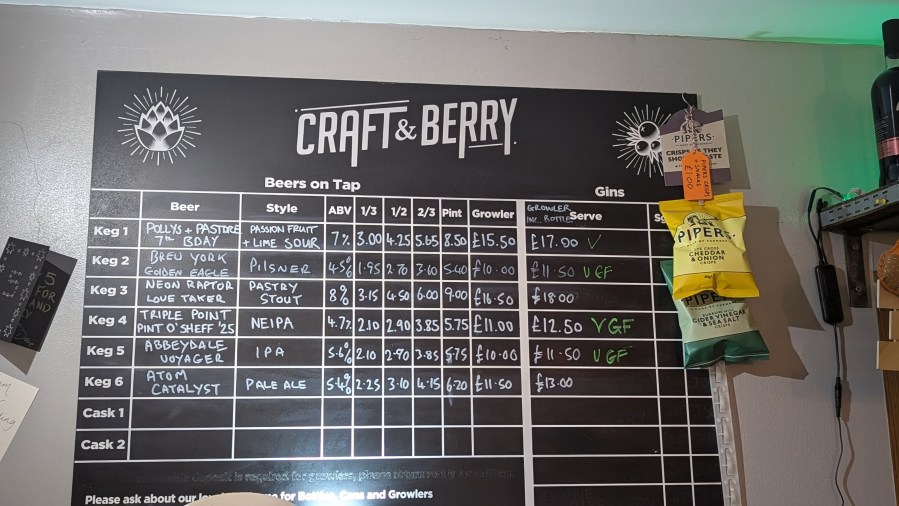 CRAFT & BERRY
Beers on Tap
Gins
Beer Style ABV 1/3 1/2 2/3 Pint Growler GROWLER INC. BOTTLE Serve
Keg 1 POLLYS + PASTORE 7TH BDAY PASSION FRUIT + LIME SOUR 7% 3.00 4.25 5.65 8.50 £15.50 £17.00 V
Keg 2 BREW YORK GOLDEN EAGLE PILSNER 4.5% 1.95 2.70 3.60 5.40 £10.00 £11.50 VGF
Keg 3 NEON RAPTOR LOVE TAKER PASTRY STOUT 8% 3.15 4.50 6.00 9.00 £16.50 £18.00
Keg 4 TRIPLE POINT PINT O'SHEFF '25 NEIPA 4.7% 2.10 2.90 3.85 5.75 £11.00 £12.50 VGF
Keg 5 ABBEYDALE VOYAGER IPA 5.6% 2.10 2.90 3.85 5.75 £10.00 £11.50 VGF
Keg 6 ATOM CATALYST PALE ALE 5.4% 2.25 3.10 4.15 6.20 £11.50 £13.00
Cask 1
Cask 2
deposit is required for growlers, please return
Please ask about our for Bottles, Cans and Growlers
PIPERS
CRISPS
PIPERS CRISPS
£1.00
PIPERS
CHEDDAR
& ONION
CRISPS
PIPERS
CIDER VINEGAR
& SEA SALT
CRISPS
5
FOR